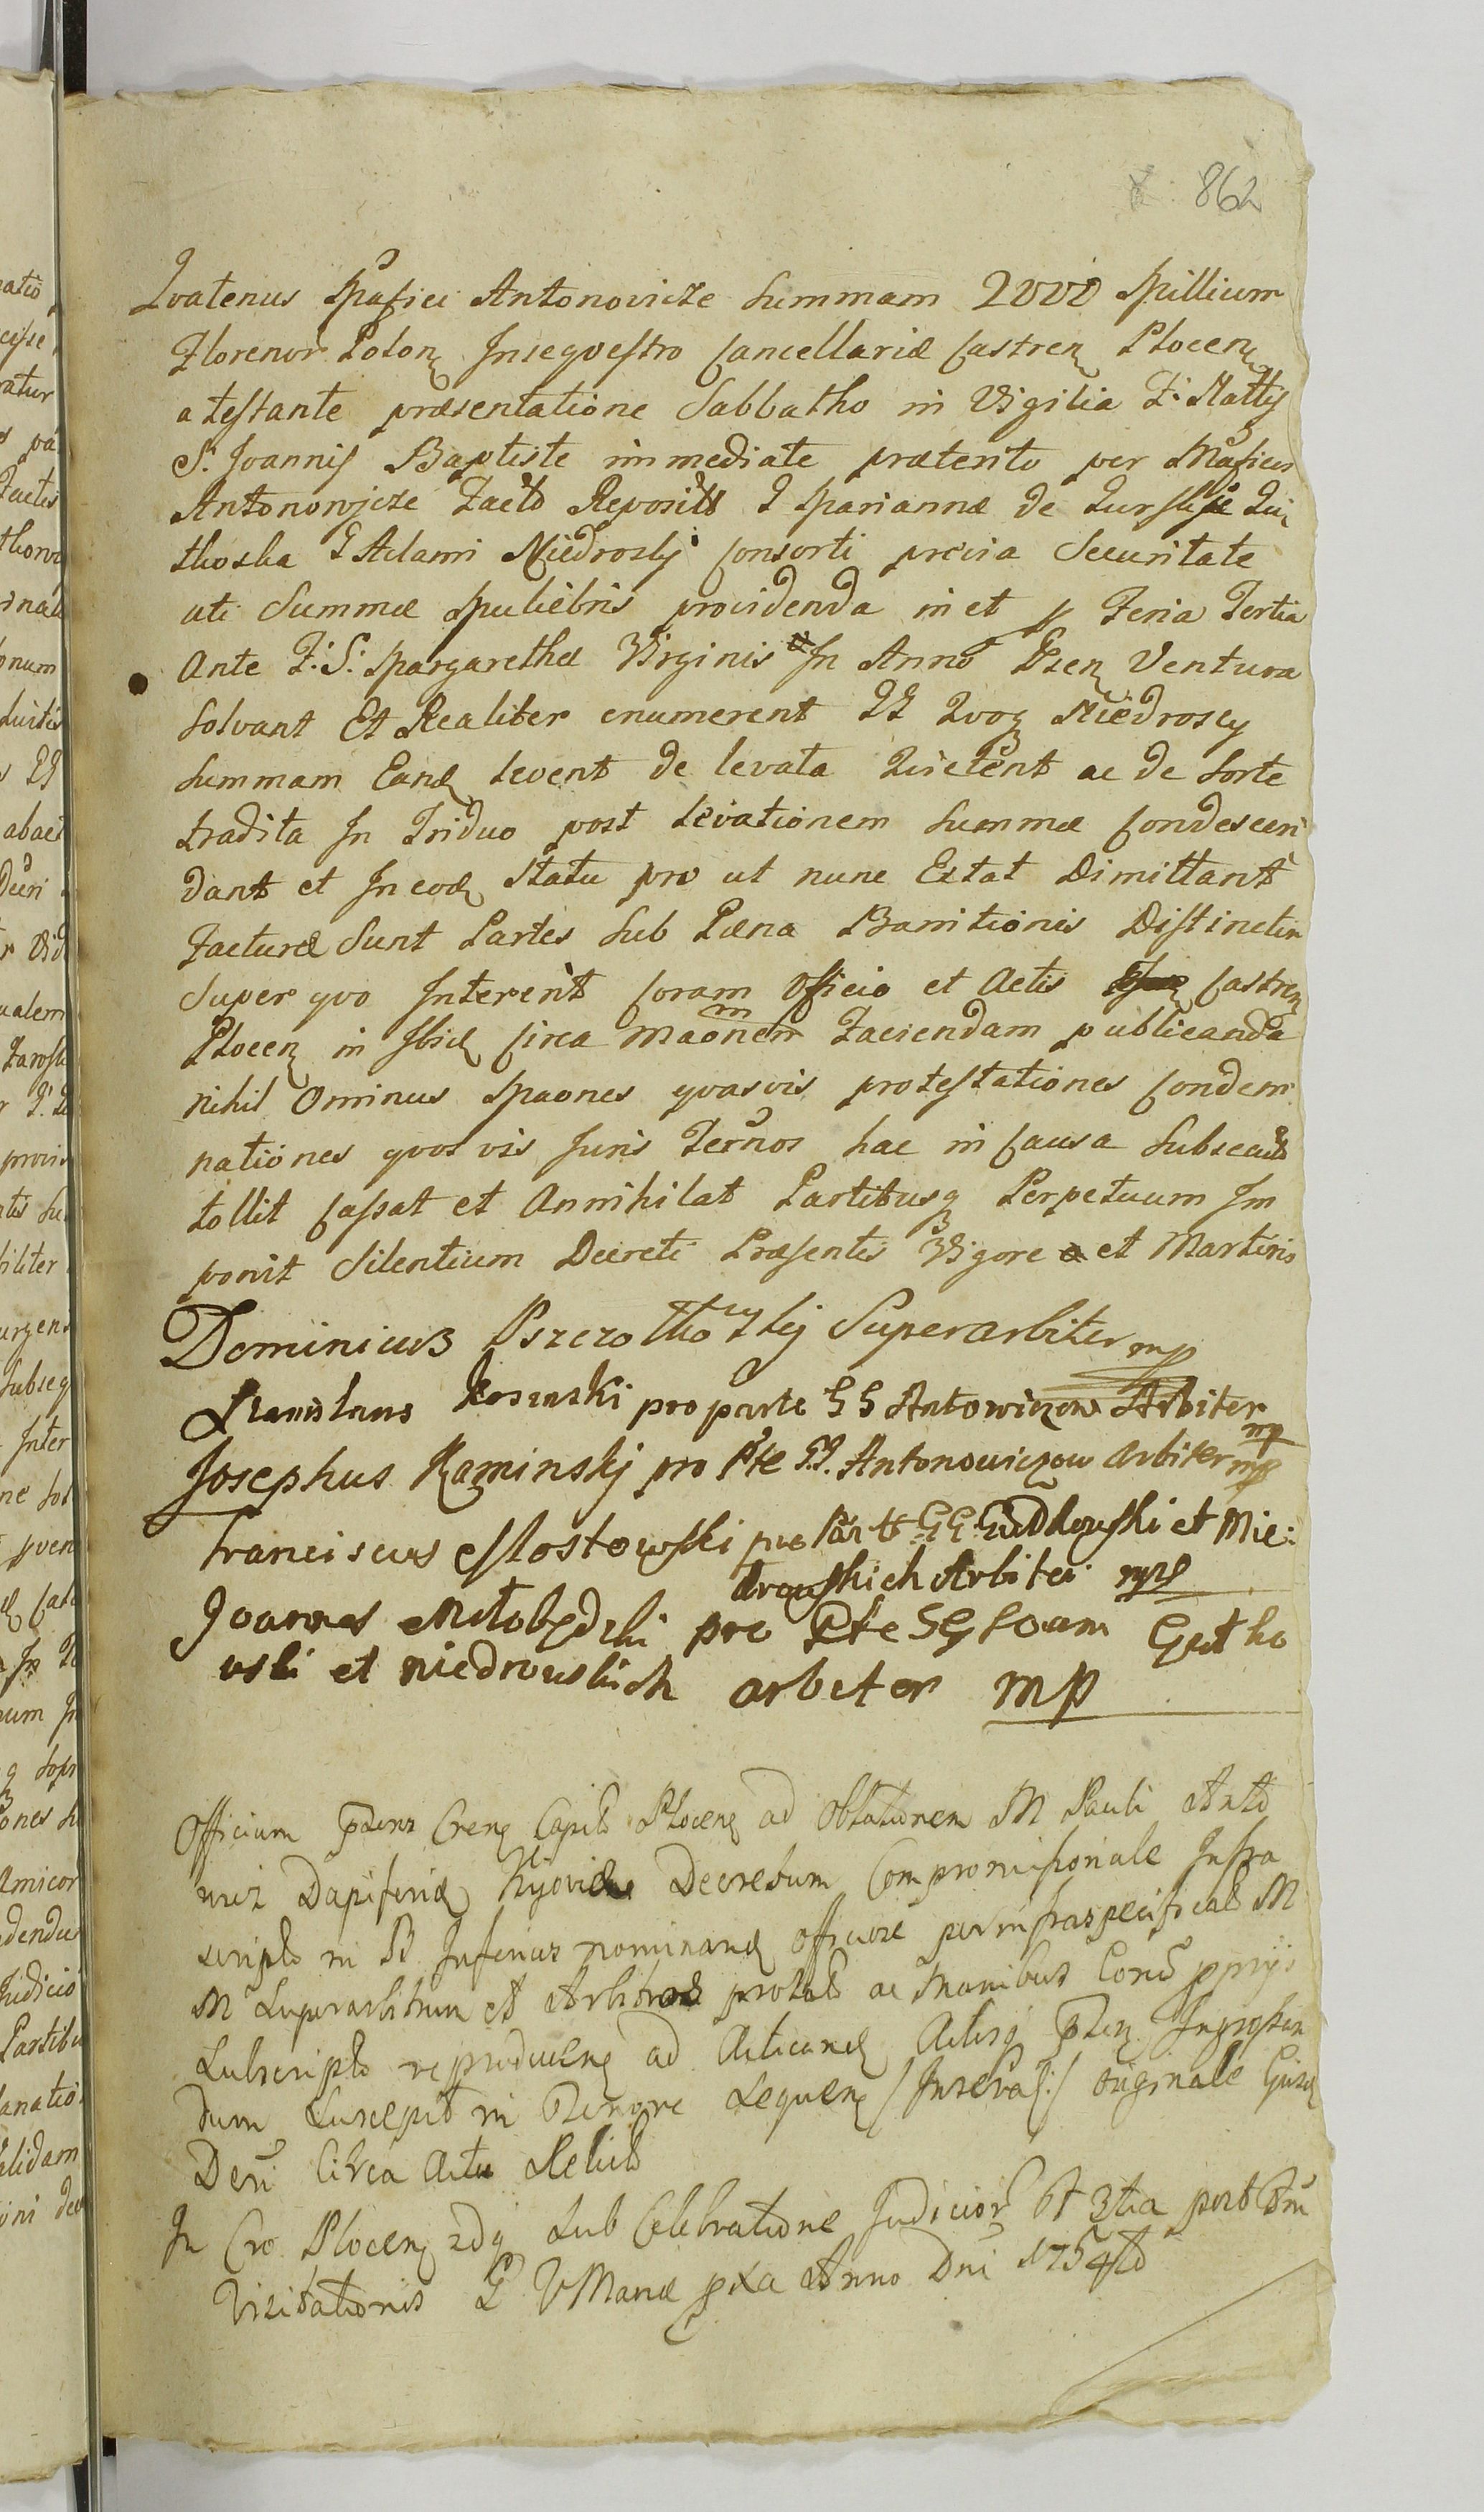 862
Qvatenus Mgfici Antonovicze Summam 2000 Millium
Florenor Polon Insegvestro Cancellariæ Castren Plocen
atestante præsentatione Sabbatho in Vigilia F. Nattis
S. Joannis Baptiste immediate præterito per Mgficos
Antonowjcze Facto Reposito G Mariannæ de
G Adami Niedrosky Consorti prævia Securitate
uti Summæ Muliebris providenda in et p Feria Tertia
Ante F. S. Margarethæ Virginis In Anno Præn Ventura
Solvant Et Realiter enumerent GG Qvoq Niedrosey
Summam Eand levent de levata Qvietent ac de Sorte
tradita In Triduo post levationem Summæ Condescen
dant et In eod Statu pro ut nunc Extat Dimittant
Facturæ Sunt Partes Sub Pæna Bannitionis Distinctim
Super qvo Interent Coram Officio et Actis Castren
Plocen in Ibid Circa maonem Faciendam publicanda
nihil Ominus Maones qvasvis protestationes Condem
nationes qvosvis Juris Ternos hac in Causa Subsecuts
tollit Cassat et Annihilat Partibusq Perpetuum Im
ponit Silentium Decreti Præsentis Vigore et Martinis
Dominicus Superarbiter mp
Stanislaus Kosinski pro parte GG Antowiczow Arbiter mp
Josephus Kaminskj pro Pte GG. Antonowiczow arbiter mp
Franciscus Mostowski pro Part GG Gudkowski et Nie:
drouskich Arbiter mp
Joannes Młobędzki pro Pte GG Gutko
wski et niedrouskich arbiter mp
Officium Præns Cren Capit Plocen ad Oblationem M Pauli Anto
wicz Dapiferid Kyoviæ Decretum Compromissionale Infra
script in Inferius nominand Officiose per infraspecificat M
M Superarbitrum et Arbitros prolat ac Manibus Eorum pprijs
Subscript reproducen ad Acticand Actisq Præn Ingrossan
dum Suscepit in Tenore Sequen /Inserat:/ Originale Ejusd
Deri Circa Actu Relict
In Cro Plocen Sub Celebratione Judicior 3tia post Fm
Visitationis B V Mariæ pxa Anno Dni 1754to